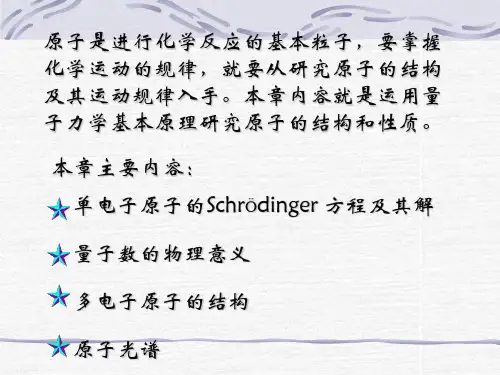 原子是进行化学反应的基本粒子，要掌握
化学运动的规律，就要从研究原子的结构
及其运动规律入手。本章内容就是运用量
子力学基本原理研究原子的结构和性质。
本章主要内容：
单电子原子的Schrödinger 方程及其解
量子数的物理意义
多电子原子的结构
原子光谱